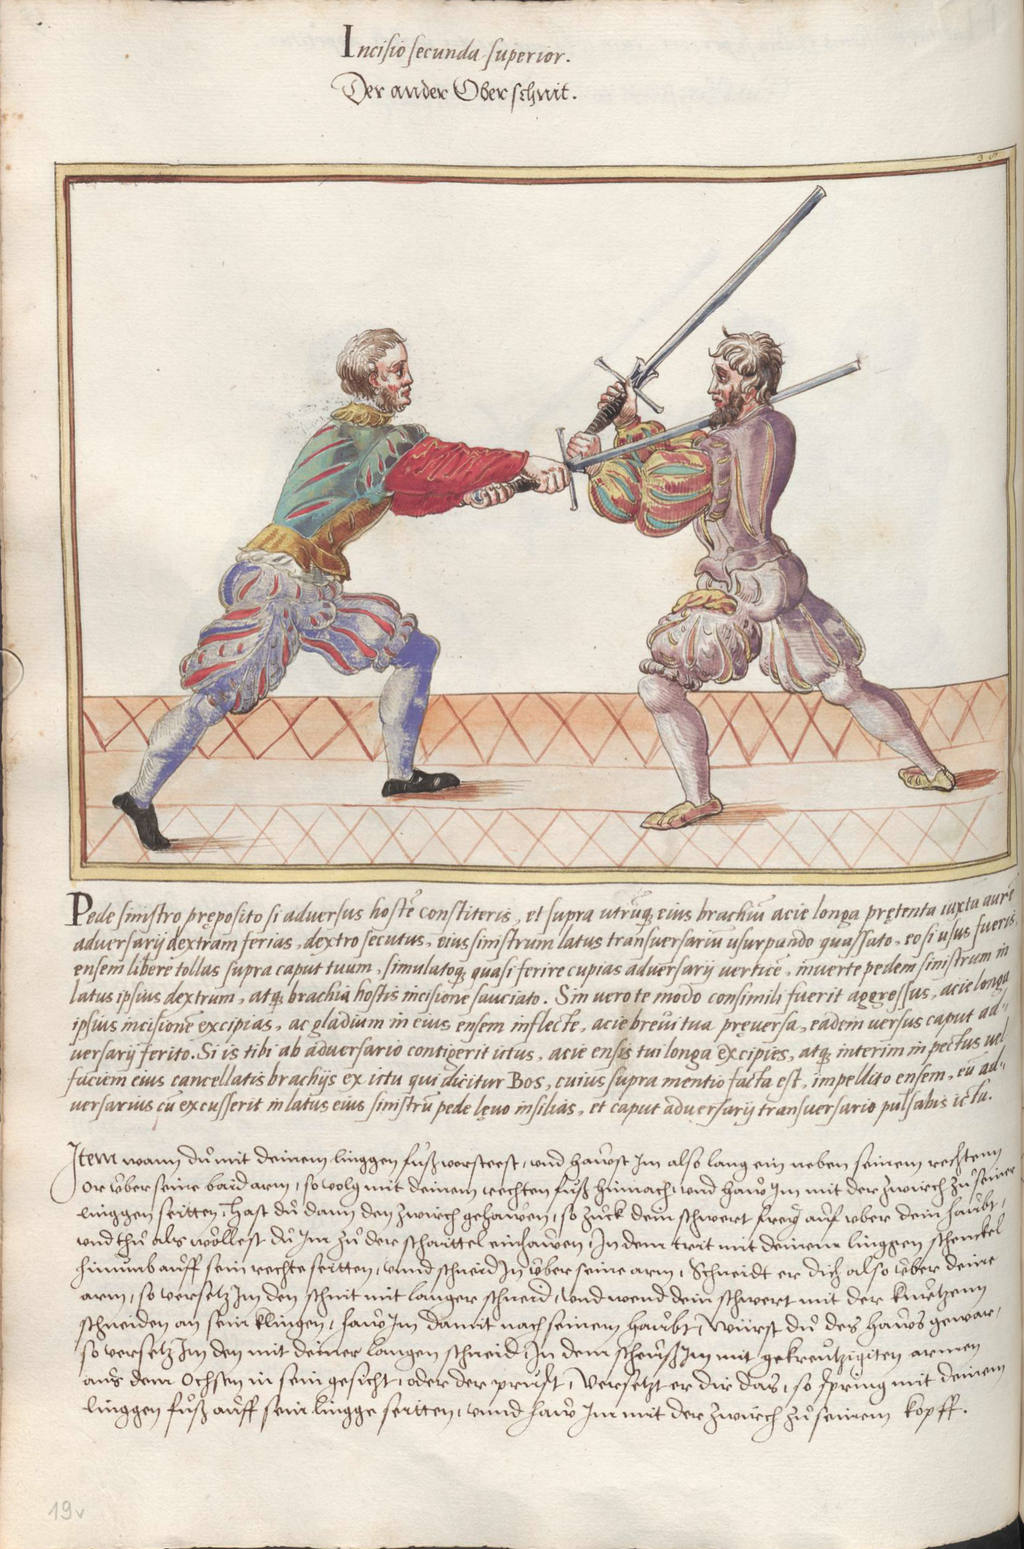 Incisio secunda superior.
Der ander Ober schnit.
Pede sinistro pręposito si adversus hostē constiteris, et supra utrūq; eius brachiū acie longa prętenta iuxta aurē
adversarij dextram ferias, dextro secutus, eius sinistrum latus transversariū usurpando quassato, eo si usus fueris,
ensem libere tollas supra caput tuum, simulatoq; quasi ferire cupias adversarij verticē, inverte pedem sinistrum in
latus ipsius dextrum, atq; brachia hostis incisione sauciato. Sin vero te modo consimili fuerit aggressus, acie longa
ipsius incisionē excipias, ac gladium in eius ensem inflecte, acie brevi tua pręversa, eadem versus caput ad-
versarij ferito. Si is tibi ab adversario contigerit ictus, acie ensis tui longa excipies, atq; interim in pectus vel
faciem eius cancellatis brachijs ex ictu qui dicitur Bos, cuius supra mentio facta est, impellito ensem, eū ad-
versarius cū excusserit in latus eius sinistrū pede lęvo insilias, et caput adversarij transversario pulsabis ictu.
Item wann dů mit deinem linggen fůß vorsteest, und hawst Im also lang ein neben seinem rechtem
Or uber seine baid arm, so volg mit deinem rechten fůß hinnach, und haw Im mit der zwirch zů seiner
linggen seitten, hast dů dann den zwirch gehawen, so zuck dein schwert frey auf uber dein haubt,
und thů als wöllest dů Im zů der schaittel einhawen, In dem trit mit deinem linggen schenckel
hinumb auff sein rechte seitten, unnd schneid In uber seine arm, Schneidt er dich also uber deine
arm, so versetz Im den schnit mit langer schneid, und wend dein schwert mit der kurtzenn
schneiden an sein klingen, haw Im damit nach seinem haubt, Würst dů des haws gewar,
so versetz Im den mit deiner langen schneid, In dem scheuß Im mit gekreutzigiten armen
aus dem Ochsen in sein gesicht, oder der prust, Versetzt er dir das, so spring mit deinem
linggen fůß auff sein lingge seitten, unnd haw Im mit der zwirch zů seinem kopff.
19v